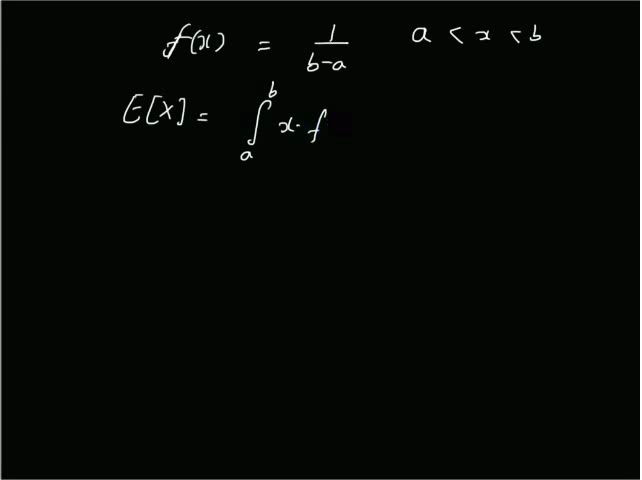 f(x) = 1/(b-a) a < x < b
E[X] = ∫_a^b x. f